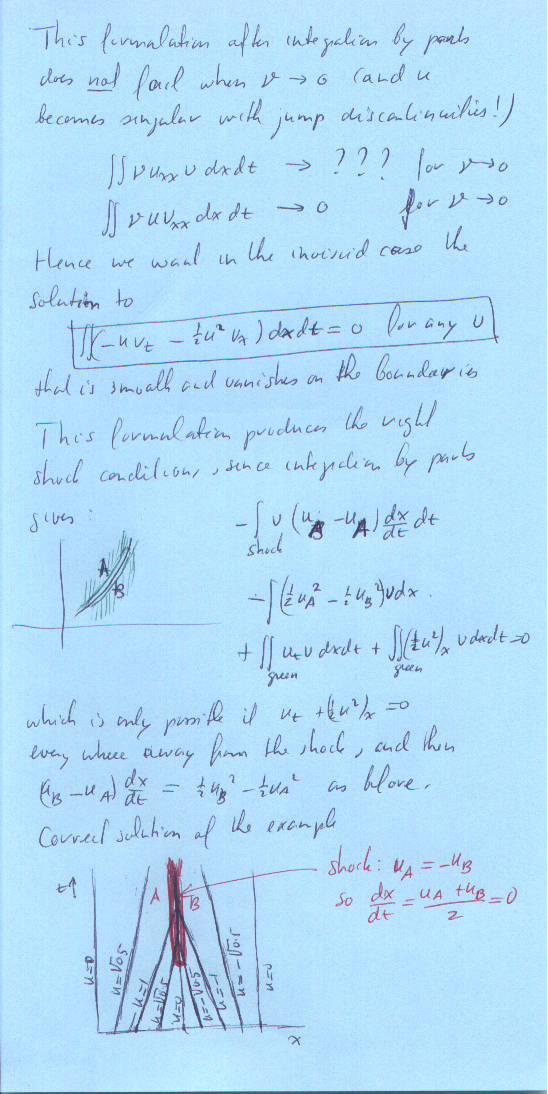 This formulation after integration by parts
does not fail when ν → 0 (and u
becomes singular with jump discontinuities!)
∬ ν u_xx v dx dt → ??? for ν→0
∬ ν u v_xx dx dt → 0 for ν→0
Hence we want in the inviscid case the
solution to
∬(-u v_t - ½u² v_x) dx dt = 0 for any v
that is smooth and vanishes on the boundaries
This formulation produces the right
shock conditions, since integration by parts
gives:
- ∫ v (u_B - u_A) dx/dt dt
shock
- ∫(½u_A² - ½u_B²) v dx.
A
B
+ ∬ u_t v dx dt + ∬(½u²)_x v dx dt = 0
green green
which is only possible if u_t + (½u²)_x = 0
every where away from the shock, and then
(u_B - u_A) dx/dt = ½u_B² - ½u_A² as before.
Correct solution of the example
shock: u_A = -u_B
so dx/dt = (u_A + u_B)/2 = 0
t↑
A
B
u=0
u=√0.5
u=1
u=√0.5
u=0
u=-√0.5
u=-1
u=-√0.5
u=0
x